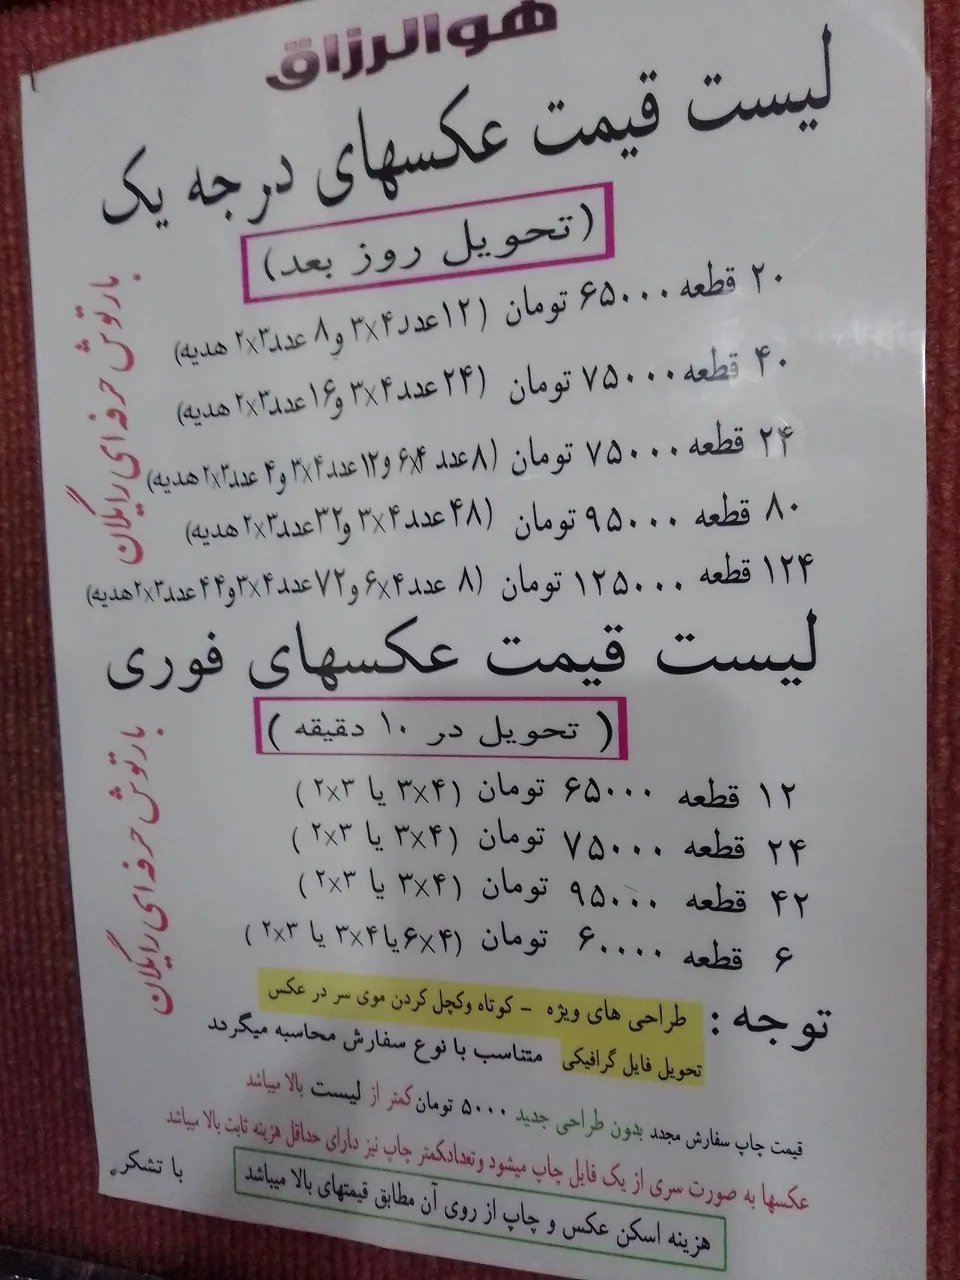 هوالرزاق
لیست قیمت عکسهای درجه یک
(تحویل روز بعد)
۲۰ قطعه ۶۵۰۰۰ تومان (۱۲عدد۳x۴ و ۸ عدد۲x۳ هدیه)
۴۰ قطعه ۷۵۰۰۰ تومان (۲۴عدد۳x۴ و۱۶عدد۲x۳ هدیه)
۲۴ قطعه ۷۵۰۰۰ تومان (۸عدد ۶x۴ و۱۲عدد۳x۴ و۴ عدد۲x۳ هدیه)
۸۰ قطعه ۹۵۰۰۰ تومان (۴۸عدد۳x۴ و۳۲عدد۲x۳ هدیه)
۱۲۴ قطعه ۱۲۵۰۰۰ تومان (۸ عدد۶x۴ و۷۲عدد۳x۴و۴۴عدد۲x۳هدیه)
بارتوش حرفه ای رایگان
لیست قیمت عکسهای فوری
(تحویل در ۱۰ دقیقه)
۱۲ قطعه ۶۵۰۰۰ تومان (۳x۴ یا ۲x۳)
۲۴ قطعه ۷۵۰۰۰ تومان (۳x۴ یا ۲x۳)
۴۲ قطعه ۹۵۰۰۰ تومان (۳x۴ یا ۲x۳)
۶ قطعه ۶۰۰۰۰ تومان (۶x۴یا۳x۴ یا ۲x۳)
بارتوش حرفه ای رایگان
توجه : طراحی های ویژه - کوتاه وکچل کردن موی سر در عکس
تحویل فایل گرافیکی متناسب با نوع سفارش محاسبه میگردد
قیمت چاپ سفارش مجدد بدون طراحی جدید ۵۰۰۰ تومان کمتر از لیست بالا میباشد
عکسها به صورت سری از یک فایل چاپ میشود وتعدادکمتر چاپ نیز دارای حداقل هزینه ثابت بالا میباشد
هزینه اسکن عکس و چاپ از روی آن مطابق قیمتهای بالا میباشد
با تشکر